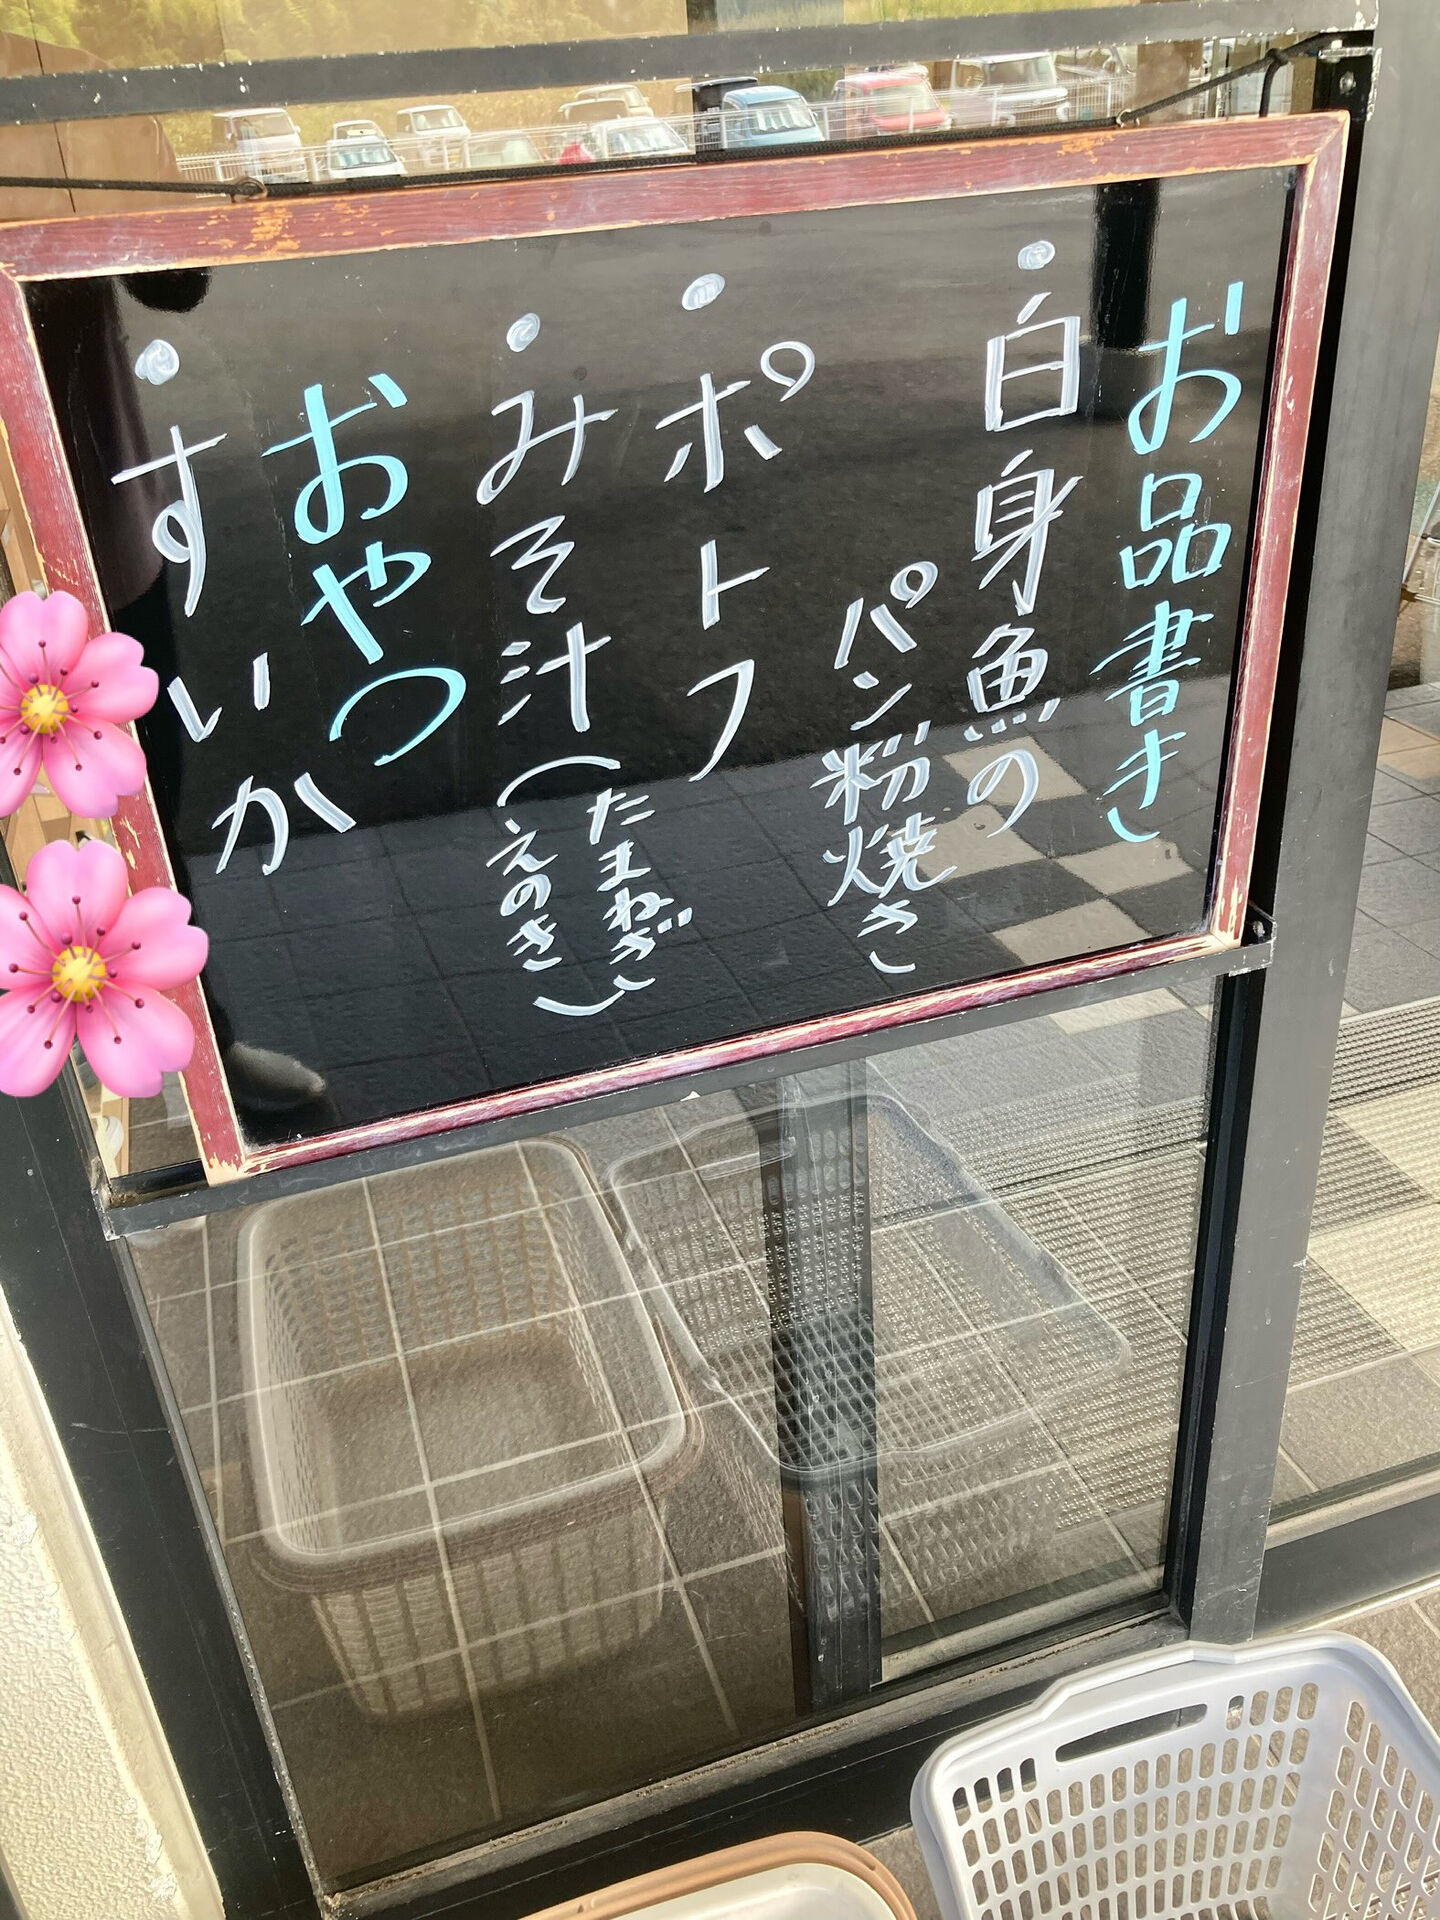 お品書き
・白身魚の
パン粉焼き
・ポトフ
・みそ汁(たまねぎ
えのき)
おやつ
・すいか